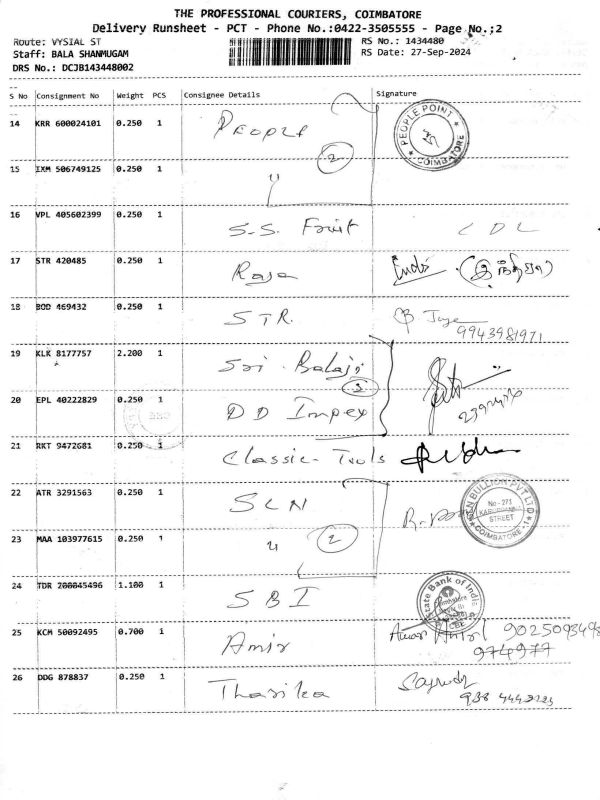 THE PROFESSIONAL COURIERS, COIMBATORE
Delivery Runsheet - PCT - Phone No.:0422-3505555 - Page No.;2
Route: VYSIAL ST
RS No.: 1434480
Staff: BALA SHANMUGAM
RS Date: 27-Sep-2024
DRS No.: DCJB143448002
S No Consignment No Weight PCS Consignee Details Signature
14 KRR 600024101 0.250 1 PEOPLE
2
PEOPLE POINT
COIMBATORE
15 IXM 506749125 0.250 1 "
16 VPL 405602399 0.250 1 S.S. Fruit CDL
17 STR 420485 0.250 1 Raja
18 BOD 469432 0.250 1 STR.
9943981971
19 KLK 8177757 2.200 1 Sri Balaji
3
20 EPL 40222829 0.250 1 DD Impex
21 RKT 9472681 0.250 1 Classic Tools
22 ATR 3291563 0.250 1 SLN
BULLION PVT LTD
No - 273
STREET
COIMBATORE - 1
23 MAA 103977615 0.250 1 "
2
24 TDR 200845496 1.100 1 SBI
State Bank of India
25 KCM 50092495 0.700 1 Amir
974977
26 DDG 878837 0.250 1 Tharika